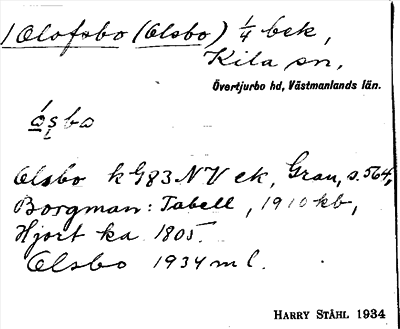 1 Olofsbo (Olsbo) 1/4 bek,
Kila sn,
Övertjurbo hd, Västmanlands län.
ósba
Olsbo k G83 NV ek, Grau, s. 564,
Borgman: Tabell, 1910 kb,
Hjort ka 1805.
Olsbo 1934 ml.
HARRY STÅHL 1934